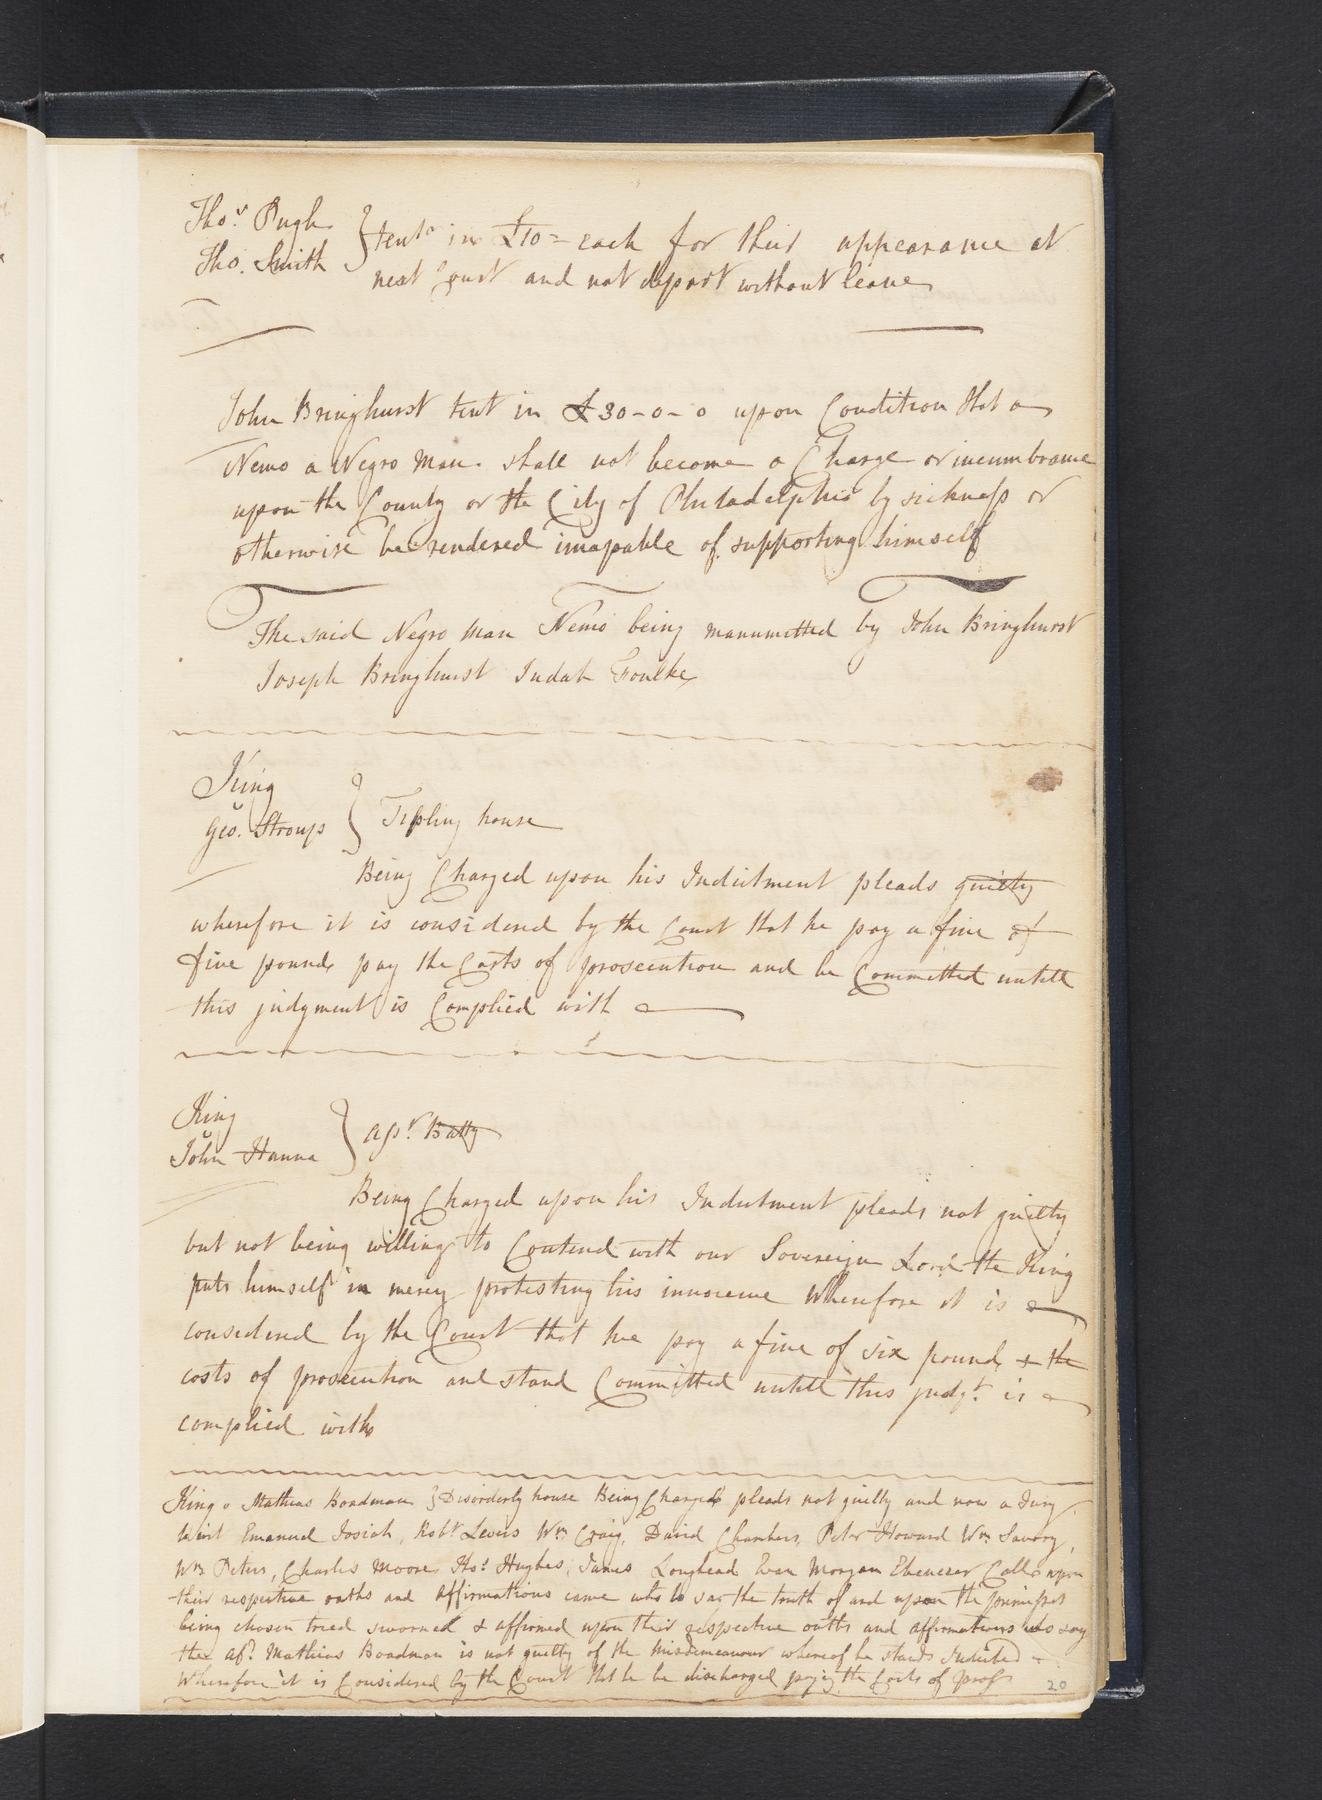 Thos. Pugh } tent in £10 = each for their appearance at
Tho. Smith next Court and not depart without leave
John Bringhurst tent in £30-0-0 upon Condition that a
Nemo a Negro Man shall not become a Charge or incumbrance
upon the County or the City of Philadelphia by sickness or
otherwise be rendered incapable of supporting himself
The said Negro Man Nemo being manumitted by John Bringhurst
Joseph Bringhurst Judah Foulke
King
v
Geo. Stroup } Tipling house
Being Charged upon his Indictment pleads guilty
wherefore it is considered by the Court that he pay a fine of
five pounds pay the Costs of prosecution and be Committed untill
this judgment is Complied with
King
v
John Hanna } Asst. Batty
Being Charged upon his Indictment pleads not guilty
but not being willing to Contend with our Sovereign Lord the King
puts himself in mercy protesting his innocence Wherefore it is
considered by the Court that he pay a fine of six pounds & the
costs of prosecution and stand Committed untill this judgt. is
complied with
King v Mathias Boadman } Disorderly house Being Charged pleads not guilty and now a Jury
to wit Emanuel Josiah, Robt Lewis Wm Craig, David Chambers, Peter Howard Wm Savory,
Wm Peters, Charles Moore Thos. Hughes, James Loughead Evan Morgan Ebenezer Call upon
their respective oaths and affirmations came who to say the truth of and upon the premisses
being chosen tried sworned & affirmed upon their respective oaths and affirmations do say
the afd. Mathias Boadman is not guilty of the Misdemeanour whereof he stands Indicted
Wherefore it is Considered by the Court that he be discharged paying the Costs of pros
20